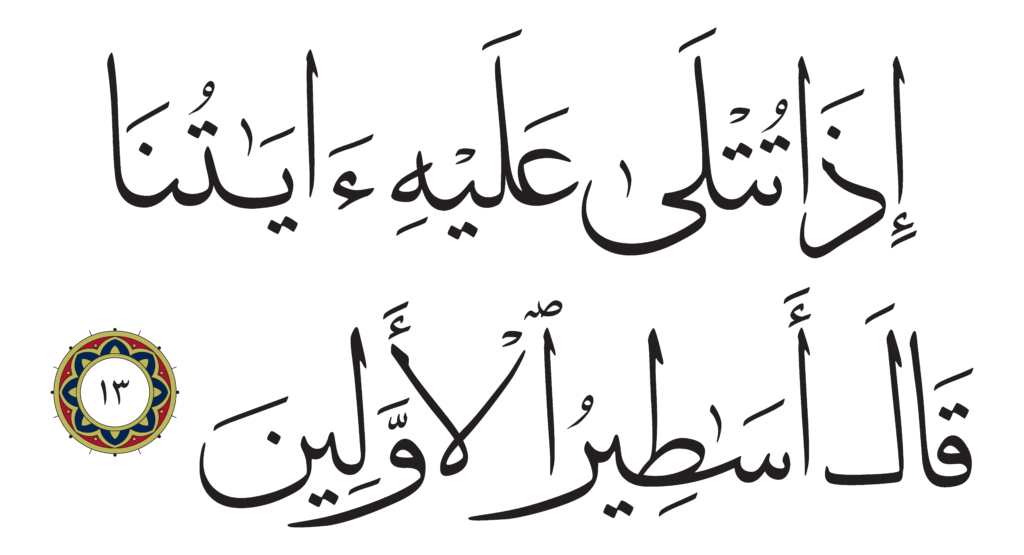 إِذَا تُتْلَىٰ عَلَيْهِ ءَايَـٰتُنَا
قَالَ أَسَـٰطِيرُ ٱلْأَوَّلِينَ ١٣